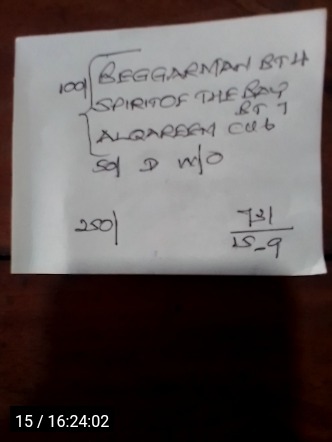 100/ BEGGARMAN BT 4
SPIRIT OF THE BAY
BT 7
ALQAREEM CU 6
50/ D W/O
250/
731
15-9
15 / 16:24:02